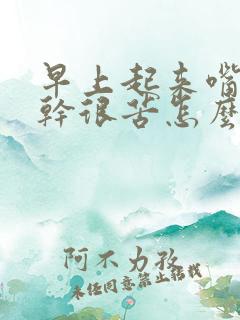 早上起来嘴
幹很苦怎麼
阿不力孜
未经同意禁止转载